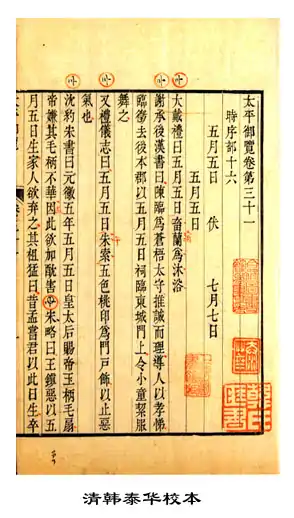 太平御覽卷第三十一
時序部十六
五月五日 伏 七月七日
五月五日
大戴禮曰五月五日畜蘭為沐浴
謝承後漢書曰陳臨為蒼梧太守推誠而理導人以孝悌
臨徵去後本郡以五月五日祠臨東城門上令小童絜服
舞之
又禮儀志曰五月五日朱索五色桃印為門戶飾以止惡
氣也
沈約宋書曰元徽五年五月五日皇太后賜帝玉柄毛扇
帝嫌其毛柄不華因此欲加酖害 宋略曰王鎮惡以五
月五日生家人欲弃之其祖猛曰昔孟嘗君以此日生卒
清韩泰华校本